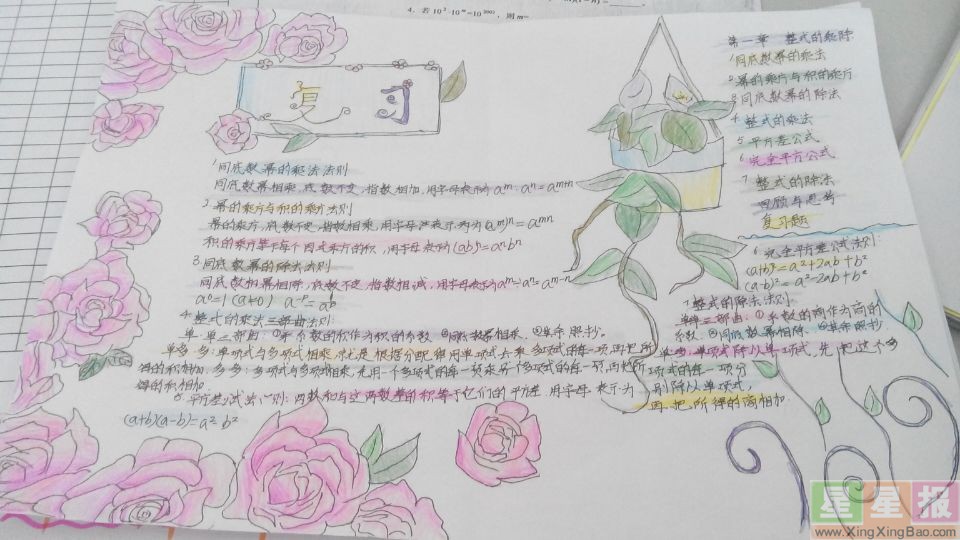 4. 若10²·10ᵐ=10²⁰⁰³, 则m=
复习
第一章 整式的乘除
1 同底数幂的乘法
2 幂的乘方与积的乘方
3 同底数幂的除法
4 整式的乘法
5 平方差公式
6 完全平方公式
7 整式的除法
回顾与思考
复习题
1 同底数幂的乘法法则
同底数幂相乘, 底数不变, 指数相加, 用字母表示为 aᵐ·aⁿ=aᵐ⁺ⁿ
2. 幂的乘方与积的乘方法则
幂的乘方, 底数不变, 指数相乘, 用字母表示为(aᵐ)ⁿ=aᵐⁿ
积的乘方等于每个因式乘方的积, 用字母表示为(ab)ⁿ=aⁿbⁿ
3 同底数幂的除法法则
同底数幂相除, 底数不变, 指数相减, 用字母表示为aᵐ÷aⁿ=aᵐ⁻ⁿ
a⁰=1 (a≠0)
4. 整式的乘法三部曲法则
单·单三部曲: ①系数的积作为积的系数 ②同底数幂相乘, ③其余照抄.
单·多: 单项式与多项式相乘, 就是根据分配律用单项式去乘多项式的每一项, 再把所
得的积相加. 多·多: 多项式与多项式相乘, 先用一个多项式的每一项乘另一个多项式的每一项, 再把所
得的积相加.
5. 平方差公式法则: 两数和与这两数差的积等于它们的平方差, 用字母表示为
(a+b)(a-b)=a² b²
6 完全平方差公式法则:
(a+b)²=a²+2ab+b²
(a-b)²=a²-2ab+b²
7 整式的除法法则
单单三部曲: ①系数的商作为商的
系数, ②同底数幂相除, ③其余照抄
单多: 单项式除以单项式, 先把这个多
项式的每一项分
别除以单项式,
再把所得的商相加.
星星报
www.XingXingBao.com